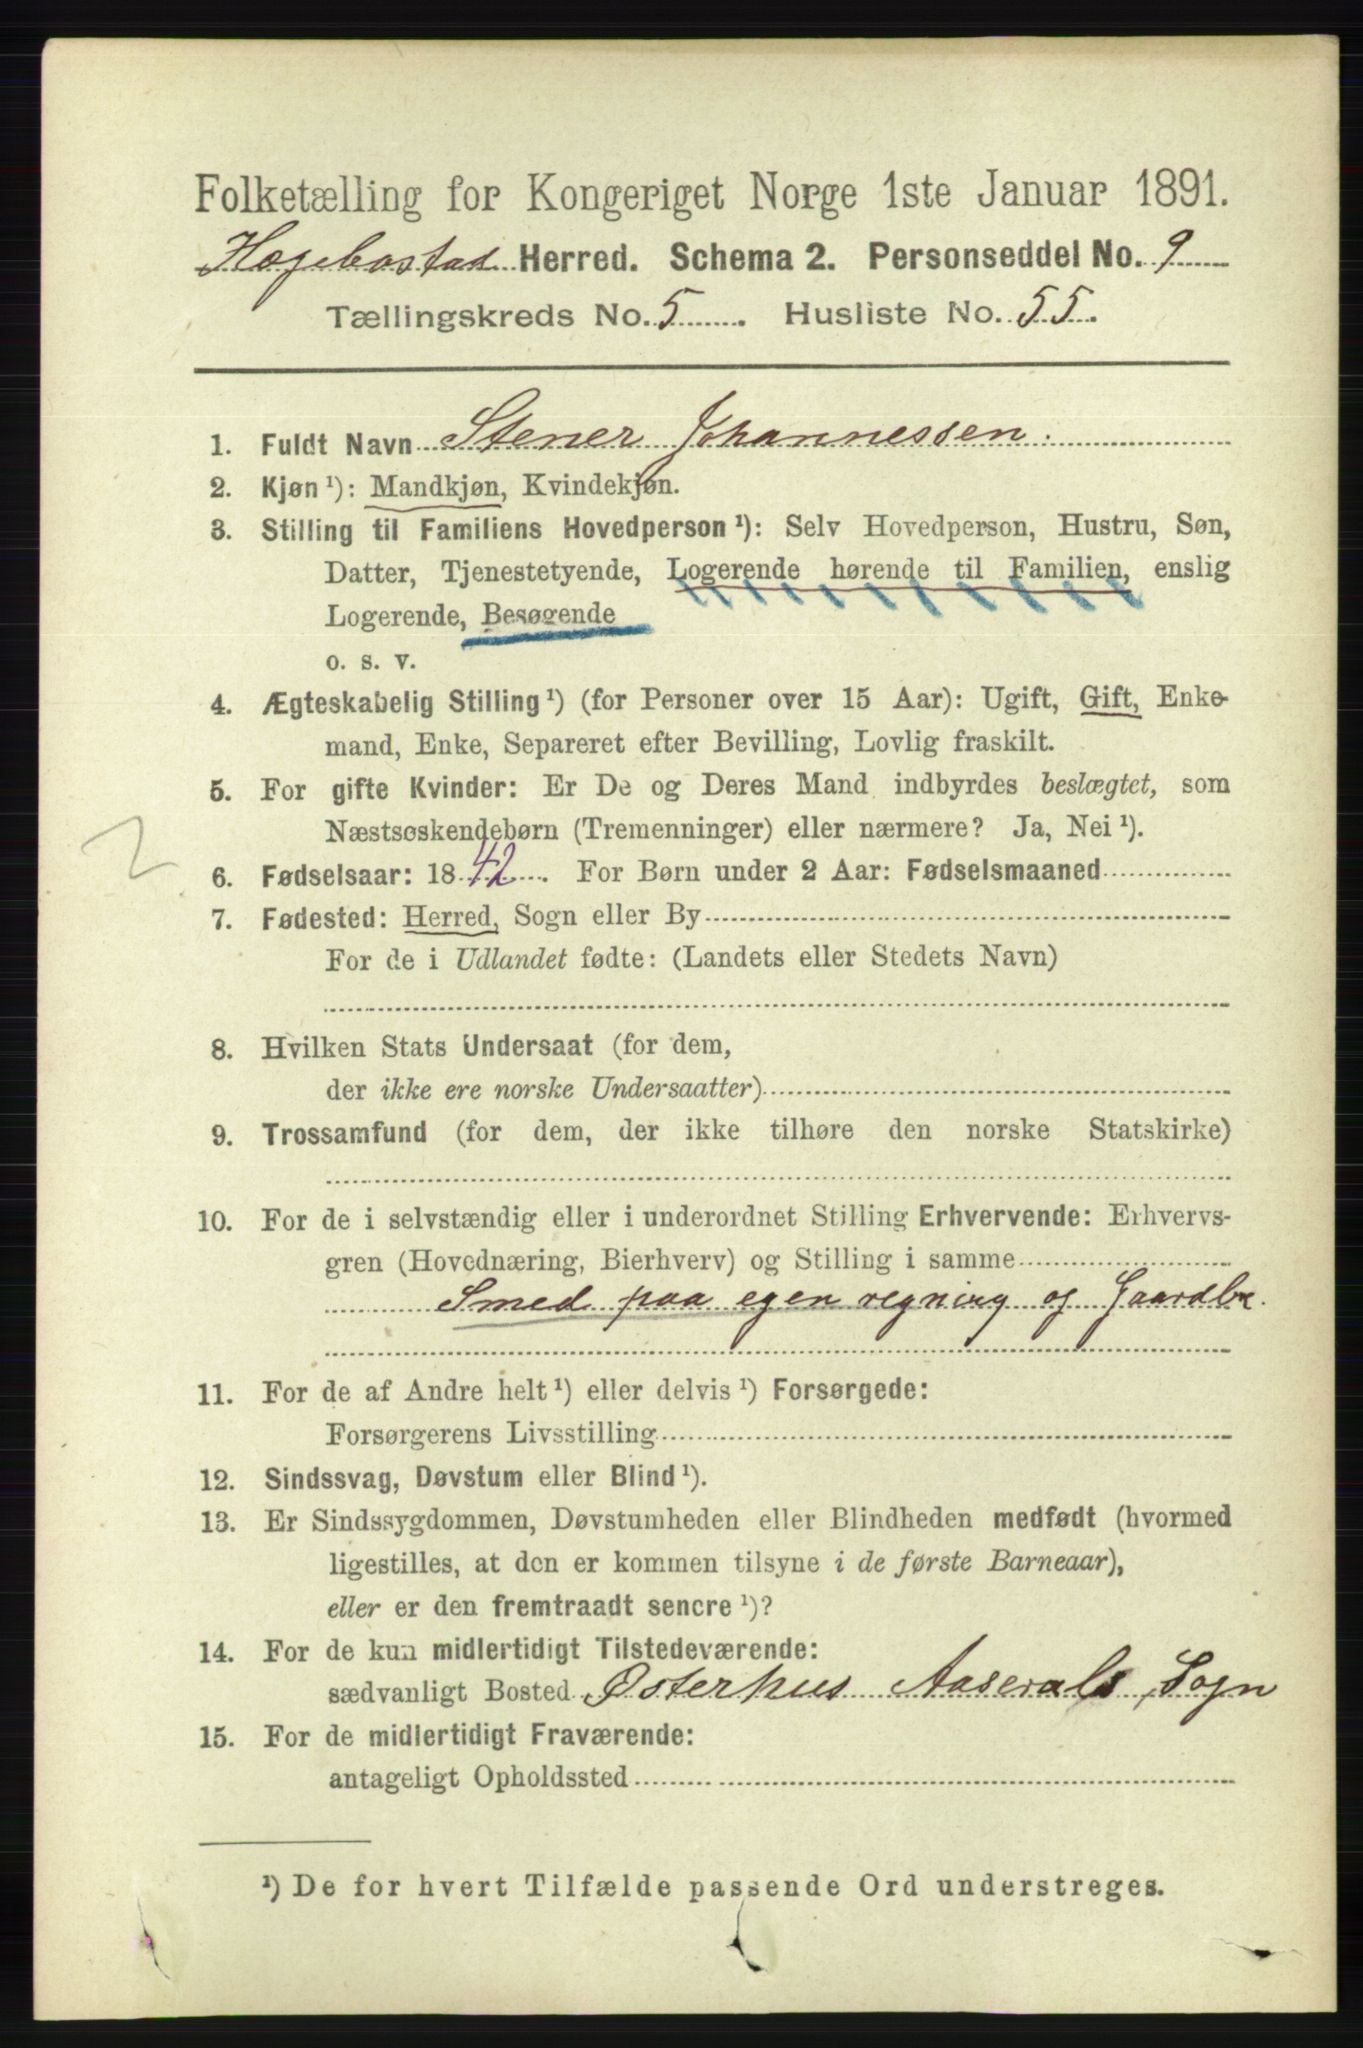 Folketælling for Kongeriget Norge 1ste Januar 1891.
Hægebostad Herred. Schema 2. Personseddel No. 9
Tællingskreds No. 5. Husliste No. 55.
1. Fuldt Navn Stener Johannessen.
2. Kjøn ¹): Mandkjøn, Kvindekjøn.
3. Stilling til Familiens Hovedperson ¹): Selv Hovedperson, Hustru, Søn,
Datter, Tjenestetyende, Logerende hørende til Familien, enslig
Logerende, Besøgende
o. s. v.
4. Ægteskabelig Stilling ¹) (for Personer over 15 Aar): Ugift, Gift, Enke-
mand, Enke, Separeret efter Bevilling, Lovlig fraskilt.
5. For gifte Kvinder: Er De og Deres Mand indbyrdes beslægtet, som
Næstsøskendebørn (Tremenninger) eller nærmere? Ja, Nei ¹).
2
6. Fødselsaar: 1842. For Børn under 2 Aar: Fødselsmaaned
7. Fødested: Herred, Sogn eller By
For de i Udlandet fødte: (Landets eller Stedets Navn)
8. Hvilken Stats Undersaat (for dem,
der ikke ere norske Undersaatter)
9. Trossamfund (for dem, der ikke tilhøre den norske Statskirke)
10. For de i selvstændig eller i underordnet Stilling Erhvervende: Erhvervs-
gren (Hovednæring, Bierhverv) og Stilling i samme
Smed paa egen regning og Gaardbr.
11. For de af Andre helt ¹) eller delvis ¹) Forsørgede:
Forsørgerens Livsstilling
12. Sindssvag, Døvstum eller Blind ¹).
13. Er Sindssygdommen, Døvstumheden eller Blindheden medfødt (hvormed
ligestilles, at den er kommen tilsyne i de første Barneaar),
eller er den fremtraadt senere ¹)?
14. For de kun midlertidigt Tilstedeværende:
sædvanligt Bosted Østerhus Aaserals Sogn
15. For de midlertidigt Fraværende:
antageligt Opholdssted
¹) De for hvert Tilfælde passende Ord understreges.